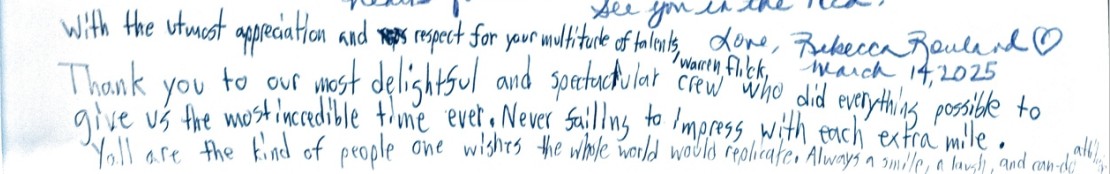 See you in the
With the utmost appreciation and respect for your multitude of talents, Love, Rebecca Rowland ♡
Warren Flick, March 14, 2025
Thank you to our most delightful and spectactular crew who did everything possible to
give us the most incredible time ever. Never failing to impress with each extra mile.
Yall are the kind of people one wishes the whole world would replicate. Always a smile, a laugh, and can-do